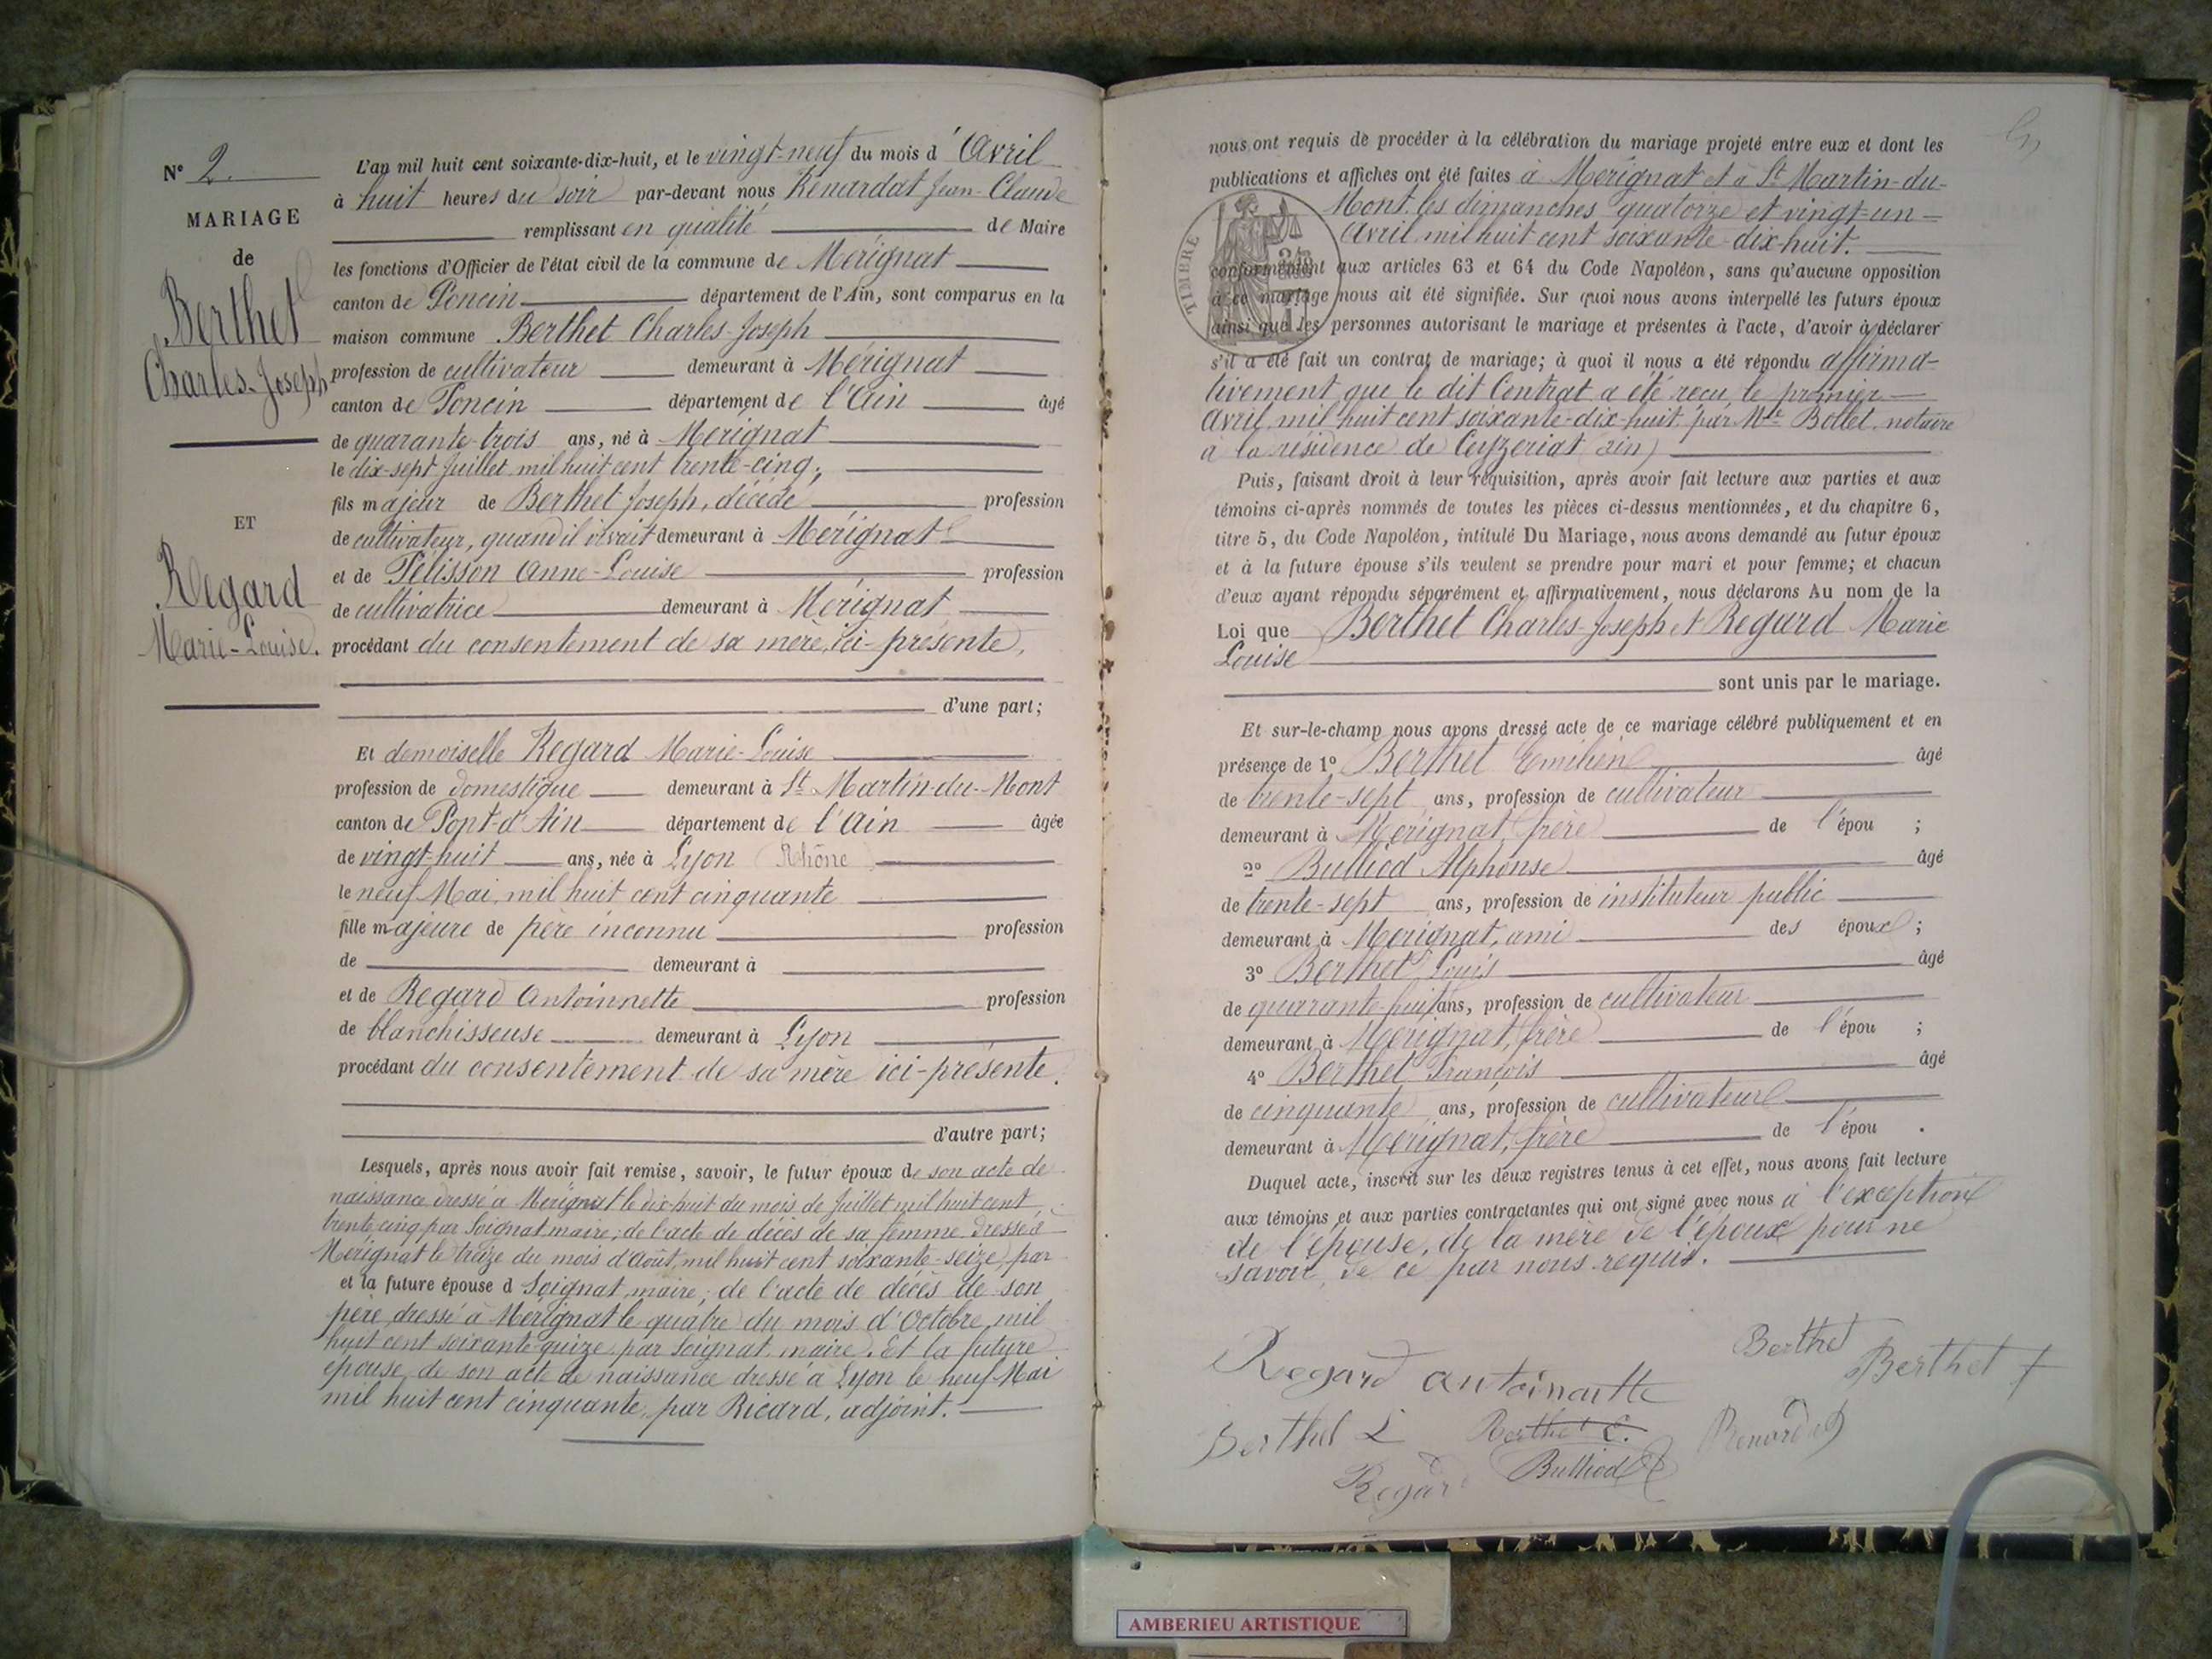 N° 2.
MARIAGE
de
Berthet
Charles-Joseph
ET
Regard
Marie-Louise.
L'an mil huit cent soixante-dix-huit, et le vingt-neuf du mois d'Avril
à huit heures du soir par-devant nous Renardat Jean-Claude
remplissant en qualité de Maire
les fonctions d'Officier de l'état civil de la commune de Mérignat
canton de Poncin département de l'Ain, sont comparus en la
maison commune Berthet Charles-Joseph
profession de cultivateur demeurant à Mérignat
canton de Poncin département de l'Ain âgé
de quarante-trois ans, né à Mérignat
le dix-sept Juillet mil huit cent trente-cinq,
fils majeur de Berthet Joseph, décédé profession
de cultivateur, quand il vivait demeurant à Mérignat
et de Pélisson Anne-Louise profession
de cultivatrice demeurant à Mérignat
procédant du consentement de sa mère, ici-présente,
d'une part;
Et demoiselle Regard Marie-Louise
profession de domestique demeurant à St Martin-du-Mont
canton de Pont-d'Ain département de l'Ain âgée
de vingt-huit ans, née à Lyon (Rhône)
le neuf Mai, mil huit cent cinquante
fille majeure de père inconnu profession
de demeurant à
et de Regard Antoinnette profession
de blanchisseuse demeurant à Lyon
procédant du consentement de sa mère ici-présente.
d'autre part;
Lesquels, après nous avoir fait remise, savoir, le futur époux de son acte de
naissance dressé à Mérignat le dix-huit du mois de Juillet mil huit cent
trente cinq par Soignat maire; de l'acte de décès de sa femme dressé à
Mérignat le treize du mois d'Août, mil huit cent soixante-seize, par
et la future épouse d Soignat, maire; de l'acte de décès de son
père dressé à Mérignat le quatre du mois d'Octobre, mil
huit cent soixante-quize par Soignat, maire. Et la future
épouse de son acte de naissance dressé à Lyon le neuf Mai
mil huit cent cinquante, par Ricard, adjoint.
nous ont requis de procéder à la célébration du mariage projeté entre eux et dont les
publications et affiches ont été faites à Mérignat et à St Martin-du-
Mont les dimanches quatorze et vingt-un
Avril mil huit cent soixante-dix-huit.
TIMBRE
conformément aux articles 63 et 64 du Code Napoléon, sans qu'aucune opposition
à ce mariage nous ait été signifiée. Sur quoi nous avons interpellé les futurs époux
ainsi que les personnes autorisant le mariage et présentes à l'acte, d'avoir à déclarer
s'il a été fait un contrat de mariage; à quoi il nous a été répondu affirma-
tivement que le dit Contrat a été reçu le premier
Avril, mil huit cent soixante-dix-huit par Mte Bollet, notaire
à la résidence de Ceyzeriat (ain)
Puis, faisant droit à leur réquisition, après avoir fait lecture aux parties et aux
témoins ci-après nommés de toutes les pièces ci-dessus mentionnées, et du chapitre 6,
titre 5, du Code Napoléon, intitulé Du Mariage, nous avons demandé au futur époux
et à la future épouse s'ils veulent se prendre pour mari et pour femme; et chacun
d'eux ayant répondu séparément et affirmativement, nous déclarons Au nom de la
Loi que Berthet Charles-Joseph et Regard Marie
Louise
sont unis par le mariage.
Et sur-le-champ nous avons dressé acte de ce mariage célébré publiquement et en
présence de 1° Berthet Emilien âgé
de trente-sept ans, profession de cultivateur
demeurant à Mérignat, frère de l'épou ;
2° Bulliod Alphonse âgé
de trente-sept ans, profession de instituteur public
demeurant à Mérignat, ami des époux ;
3° Berthet Louis âgé
de quarante-huit ans, profession de cultivateur
demeurant à Mérignat, frère de l'épou ;
4° Berthet François âgé
de cinquante ans, profession de cultivateur
demeurant à Mérignat, frère de l'épou .
Duquel acte, inscrit sur les deux registres tenus à cet effet, nous avons fait lecture
aux témoins et aux parties contractantes qui ont signé avec nous à l'exception
de l'épouse, de la mère de l'époux pour ne
savoir, de ce par nous requis.
Berthet
Berthet f
Regard Antoinatte
Berthet L
Berthet C.
Renardat
Regard
Bulliod
AMBERIEU ARTISTIQUE